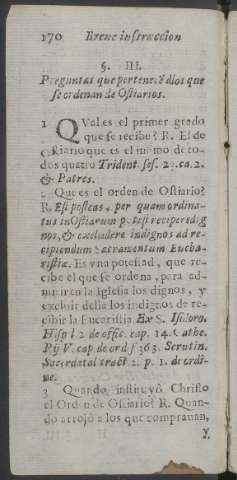 170 Breue instruccion
§. III.
Preguntas que pertenecẽ à los que
se ordenan de Ostiarios.
1 QVal es el primer grado
que se recibe? R. El de
Ostiario que es el mismo de to-
dos quatro Trident. ses. 23. ca. 2.
& Patres.
2 Que es el orden de Ostiario?
R. Est potestas, per quam ordina-
tus in Ostiarum potest recipere dig
nos, & excludere indignos ad re-
cipiendum Sacramentum Eucha-
ristiæ. Es vna potestad, que re-
cibe el que se ordena, para ad-
mitir en la Iglesia los dignos, y
excluir della los indignos de re-
cibir la Eucaristia Ex S. Isidoro.
Hisp l 2 de offic. cap. 14. Cathe.
Rij V. cap. de ord f 363. Scrutin.
Sacerdotal tract 2. p. 1. de ordi-
ne.
3 Quando instituyô Christo
el Orden de Ostiario? R. Quan-
do arrojò a los que comprauan,
y